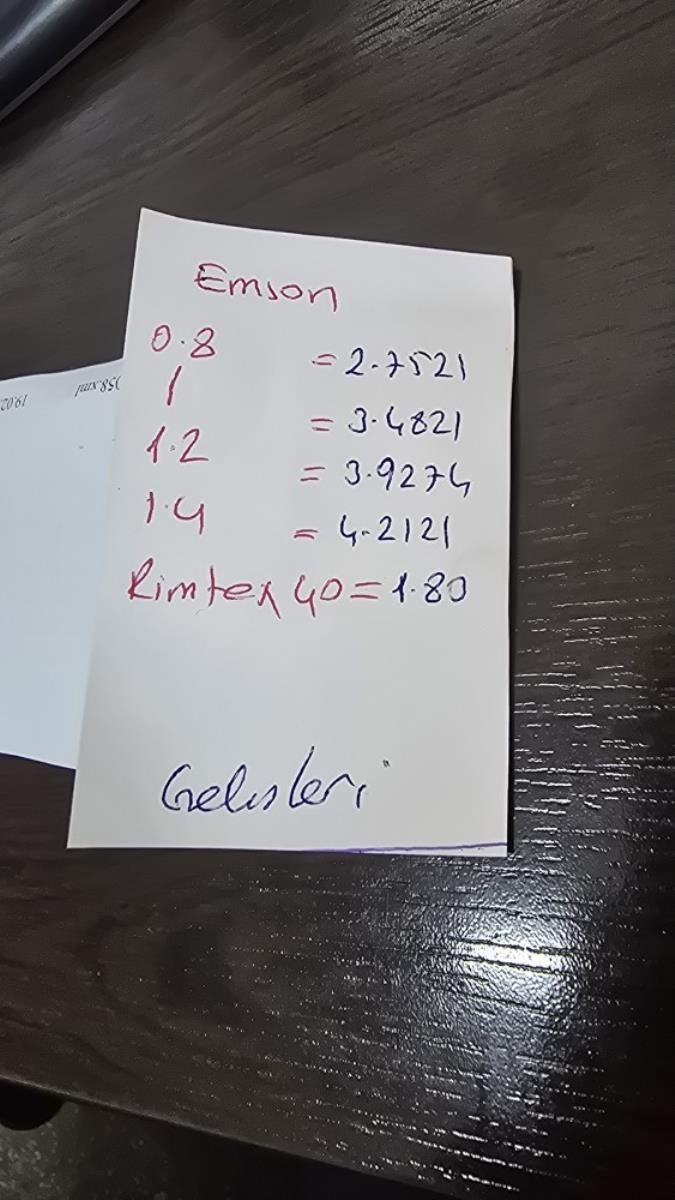 Emson
0.8 = 2.7521
1 = 3.4821
1.2 = 3.9274
1.4 = 4.2121
Rimtex 40 = 1.80
Gelısleri